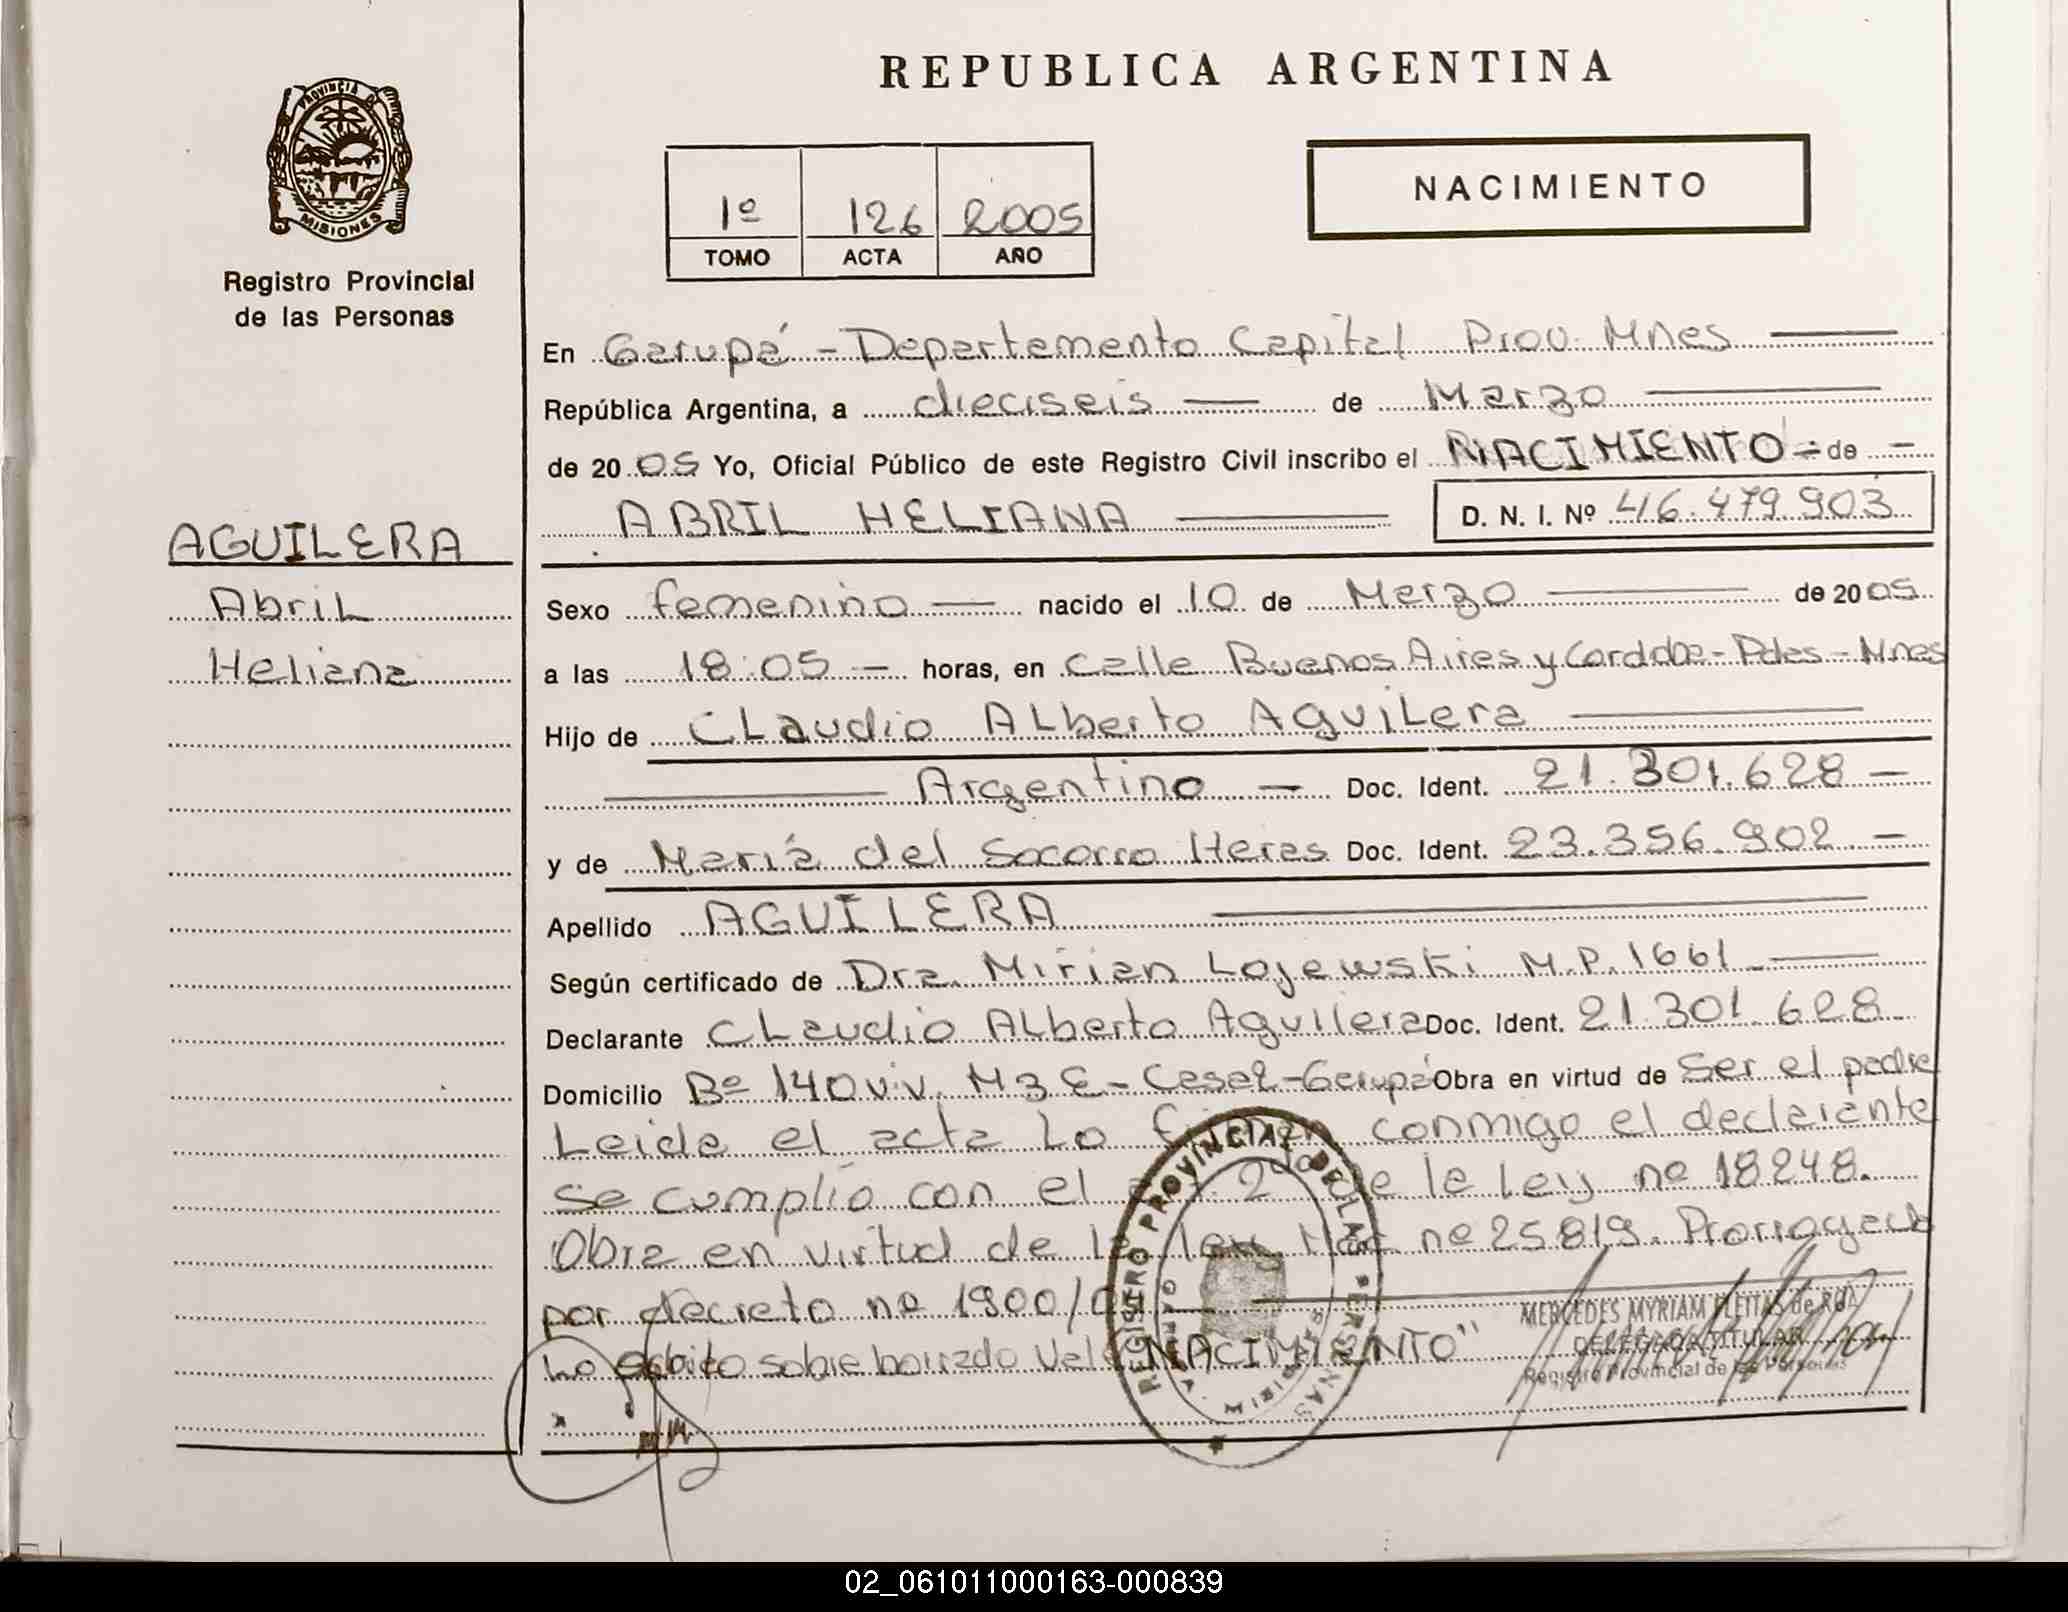 PROVINCIA DE
MISIONES
Registro Provincial
de las Personas
AGUILERA
Abril
Heliana
REPUBLICA ARGENTINA
1º 126 2005
TOMO ACTA AÑO
NACIMIENTO
En Garupá - Departamento Capital Prov. Mnes
República Argentina, a dieciseis de Marzo
de 2005 Yo, Oficial Público de este Registro Civil inscribo el NACIMIENTO de
ABRIL HELIANA D. N. I. Nº 46.479.903
Sexo femenino nacido el 10 de Marzo de 2005
a las 18:05 horas, en calle Buenos Aires y Cordoba - Pdas - Mnes
Hijo de Claudio Alberto Aguilera
Argentino Doc. Ident. 21.301.628
y de María del Socorro Heras Doc. Ident. 23.356.902
Apellido AGUILERA
Según certificado de Dra. Mirian Lojewski M.P. 1661
Declarante Claudio Alberto Aguilera Doc. Ident. 21.301.628
Domicilio Bº 140 viv. M3 E - Garupá Obra en virtud de ser el padre
Leida el acta la firman conmigo el declarante
Se cumplio con el art. 2do de la Ley nº 18248.
Obra en virtud de la ley Nac nº 25819. Prorrogada
por decreto nº 1900/
Lo escrito sobre borrado Vale "NACIMIENTO"
REGISTRO PROVINCIAL DE LAS PERSONAS
MERCEDES MYRIAM FLEITAS de RUA
DELEGADA TITULAR
Registro Provincial de las Personas
02_061011000163-000839